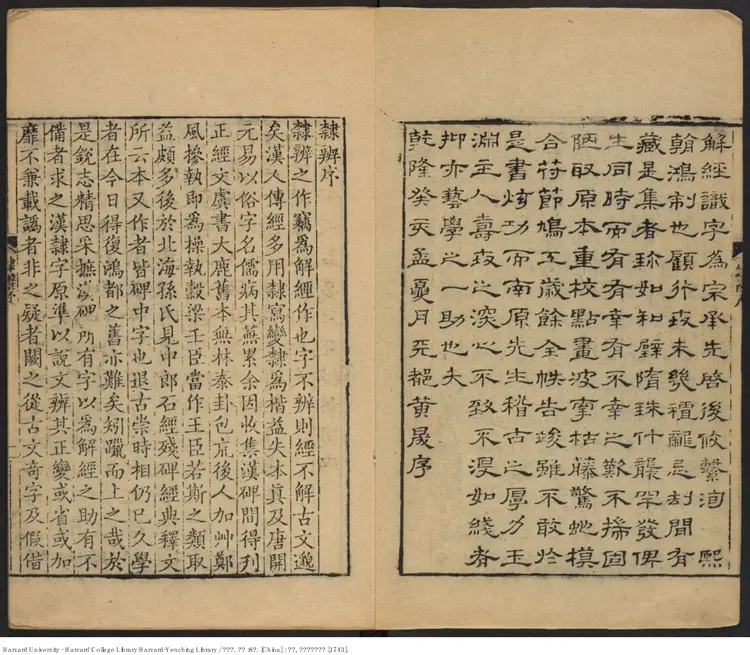 解經識字爲宗承先啓後攸繫洵熙
翰鴻制也顧行世未幾禮龍忌刦聞有
藏是集者珍如和璧隋珠什襲罕發俾
生同時而有有幸有不幸之歎不揣固
陋取原本重校點畫波摩枯藤驚虵模
合符節鳩工歲餘全帙告竣雖不敢於
是書炫功而南原先生稽古之厚力玉
淵主人壽世之深心不致不湮如綫者
抑亦藝學之一助也夫
乾隆癸亥孟夏月天都黄晟序
隸辨序
隸辨之作竊爲解經作也字不辨則經不解古文邈
矣漢人傳經多用隸寫變隸爲楷益失本眞及唐開
元易以俗字名儒病其蕪累余因收集漢碑間得刋
正經文虞書大鹿舊本無林泰卦包巟後人加艸鄭
風摻執卽爲操執穀梁壬臣當作王臣若斯之類取
益頗多後於北海孫氏見中郎石經殘碑經典釋文
所云本又作者皆碑中字也退古崇時相仍已久學
者在今日得復鴻都之舊亦難矣矧躐而上之哉於
是銳志精思采摭漢碑所有字以爲解經之助有不
備者求之漢隸字原準以說文辨其正變或省或加
靡不兼載譌者非之疑者闕之從古文奇字及假借
隸辨序
Harvard University - Harvard College Library Harvard-Yenching Library / ???. ?? :8?. [China] : ??, ??????? [1743].